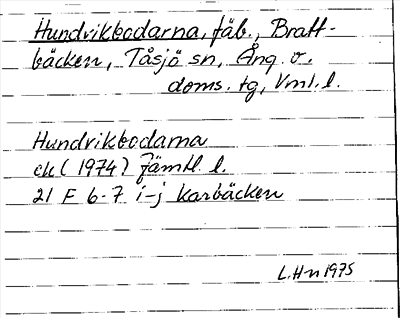 Hundvikbodarna, fäb., Bratt-
bäcken, Tåsjö sn, Ång. v.
doms. tg, Vml. l.
Hundvikbodarna
ek (1974) Jämtl. l.
21 F 6-7 i-j Karbäcken
L.H-n 1975